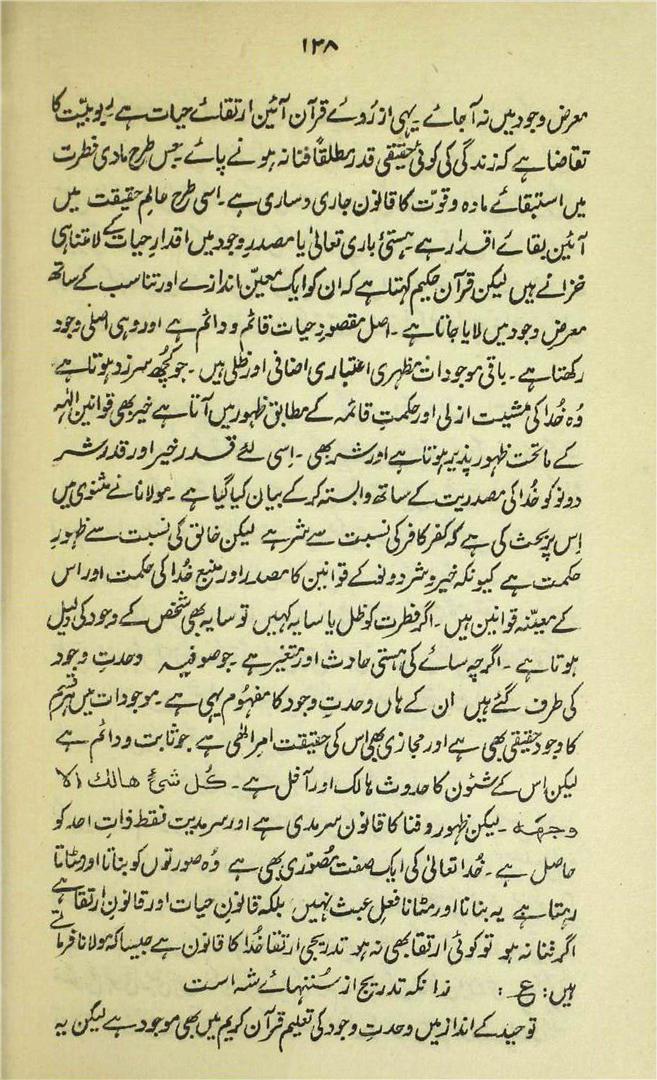 ۱۳۸
معرض وجود میں نہ آ جائے۔ یہی از رُوئے قرآن آئین ارتقائے حیات ہے ربوبیّت کا
تقاضا ہے کہ زندگی کی کوئی حقیقی قدر مطلقاً فنا نہ ہونے پائے۔ جس طرح مادی فطرت
میں استبقائے مادہ و قوّت کا قانون جاری و ساری ہے۔ اسی طرح عالمِ حقیقت میں
آئین بقائے اقدار ہے۔ ہستیٔ باری تعالیٰ یا مصدرِ وجود میں اقدارِ حیات کے لامتناہی
خزانے ہیں لیکن قرآن حکیم کہتا ہے کہ ان کو ایک معیّن اندازے اور تناسب کے ساتھ
معرضِ وجود میں لایا جاتا ہے۔ اصل مقصودِ حیات قائم و دائم ہے اور وہی اصلی وجود
رکھتا ہے۔ باقی موجودات مظہری اعتباری اضافی اور ظلی ہیں۔ جو کچھ سرزد ہوتا ہے
وُہ خُدا کی مشیت ازلی اور حکمتِ قائمہ کے مطابق ظہور میں آتا ہے خیر بھی قوانین الٰہیہ
کے ماتحت ظہور پذیر ہوتا ہے اور شر بھی۔ اِسی لئے قدر خیر اور قدر شر
دونو کو خُدا کی مصدریت کے ساتھ وابستہ کر کے بیان کیا گیا ہے۔ مولانا نے مثنوی میں
اِس پر بحث کی ہے کہ کفر کافر کی نسبت سے شر ہے لیکن خالق کی نسبت سے ظہورِ
حکمت ہے کیونکہ خیر و شر دونو کے قوانین کا مصدر اور منبع خُدا کی حکمت اور اس
کے معیّنہ قوانین ہیں۔ اگر فطرت کو ظل یا سایہ کہیں تو سایہ بھی شخص کے وجود کی دلیل
ہوتا ہے۔ اگرچہ سائے کی ہستی حادث اور متغیر ہے۔ جو صوفیہ وحدتِ وجود
کی طرف گئے ہیں ان کے ہاں وحدتِ وجود کا مفہوم یہی ہے۔ موجودات میں ہر قسم
کا وجود حقیقی بھی ہے اور مجازی بھی اس کی حقیقت امرِ الٰہی ہے جو ثابت و دائم ہے
لیکن اس کے شئون کا حدوث ہالک اور آفل ہے۔ کُل شیٔ هالك الا
وجهَه۔ لیکن ظہور و فنا کا قانون سرمدی ہے اور سرمدیت فقط ذاتِ احد کو
حاصل ہے۔ خُدا تعالیٰ کی ایک صفت مُصوّری بھی ہے وُہ صورتوں کو بناتا اور مٹاتا
رہتا ہے یہ بنانا اور مٹانا فعلِ عبث نہیں بلکہ قانونِ حیات اور قانونِ ارتقا ہے
اگر فنا نہ ہو تو کوئی ارتقا بھی نہ ہو تدریجی ارتقا خُدا کا قانون ہے جیسا کہ مولانا فرماتے
ہیں: ع : زانکہ تدریج از سُنتہائے شہ است
توحید کے انداز میں وحدتِ وجود کی تعلیم قرآن کریم میں بھی موجود ہے لیکن یہ